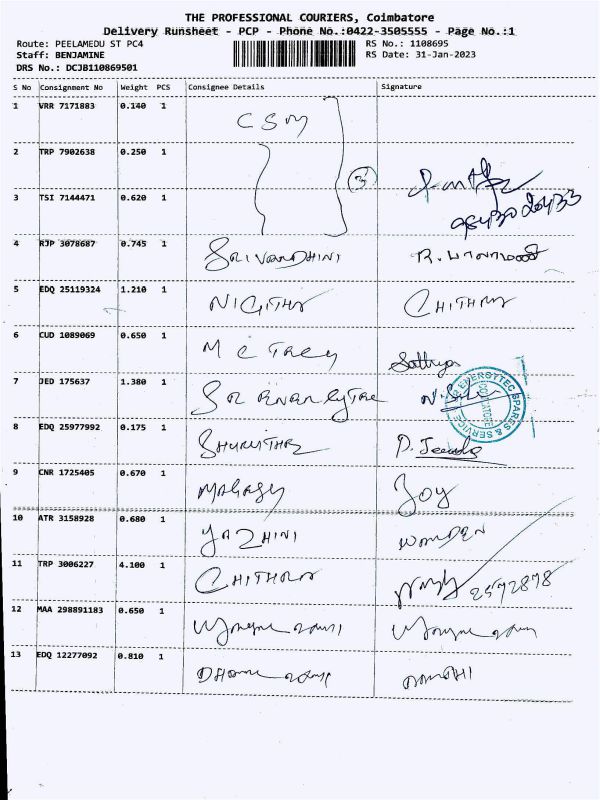 THE PROFESSIONAL COURIERS, Coimbatore
Delivery Runsheet - PCP - Phone No.:0422-3505555 - Page No.:1
Route: PEELAMEDU ST PC4 RS No.: 1108695
Staff: BENJAMINE RS Date: 31-Jan-2023
DRS No.: DCJB110869501
S No Consignment No Weight PCS Consignee Details Signature
1 VRR 7171883 0.140 1 CSM
2 TRP 7902638 0.250 1
3
3 TSI 7144471 0.620 1
4 RJP 3078687 0.745 1 SRIVANDHINI
5 EDQ 25119324 1.210 1 NIGITHA CHITHRA
6 CUD 1089069 0.650 1 Sathya
7 JED 175637 1.380 1
ENERSYTEC SPARES & SERVICE
COIMBATORE
8 EDQ 25977992 0.175 1 SHURUTHI
9 CNR 1725405 0.670 1 JOY
10 ATR 3158928 0.680 1 YAZHINI WARDEN
11 TRP 3006227 4.100 1 CHITHRA 2572878
12 MAA 298891183 0.650 1
13 EDQ 12277092 0.810 1